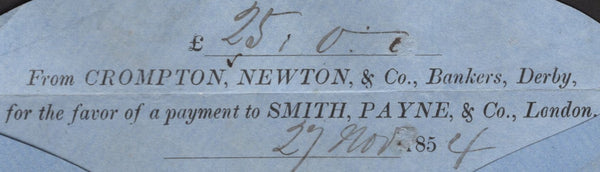 £ 25 : 0 : 0
From CROMPTON, NEWTON, & Co., Bankers, Derby,
for the favor of a payment to SMITH, PAYNE, & Co., London.
27 Nov. 1854